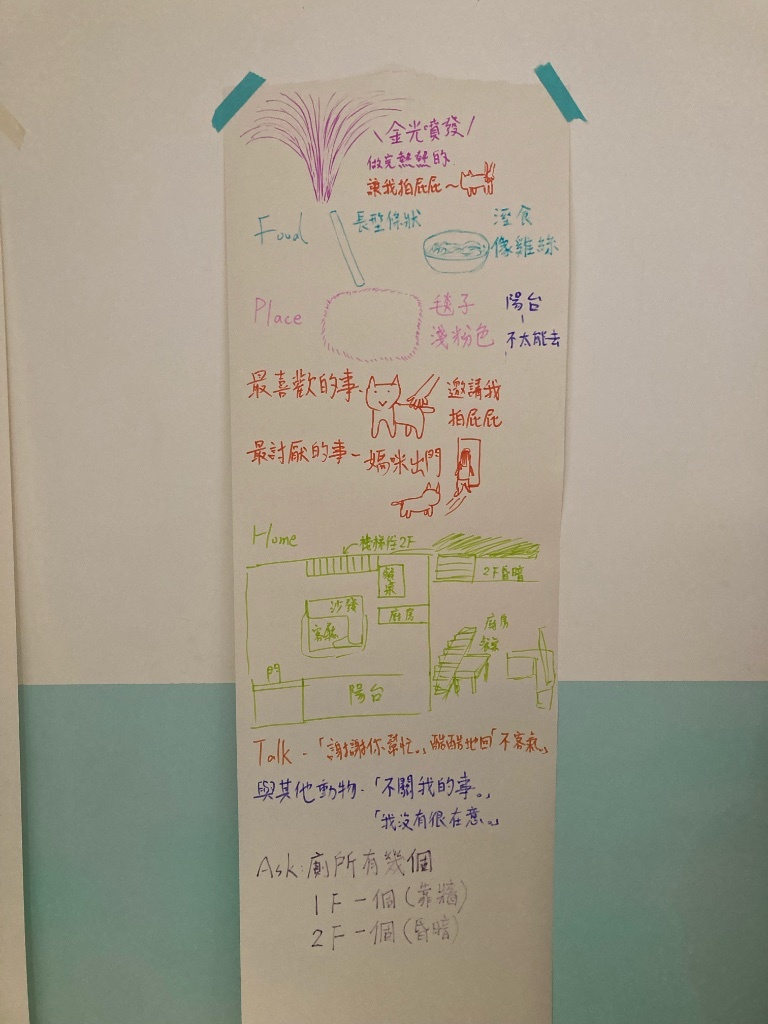 \金光噴發/
做完熱熱的
讓我拍屁屁～
Food
長型條狀
溼食
像雞絲
Place
毯子
淺粉色
陽台
不太能去
最喜歡的事-
邀請我
拍屁屁
最討厭的事-媽咪出門
Home
樓梯往2F
2F昏暗
餐桌
沙發
廚房
客廳
廚房
門
陽台
Talk -「謝謝你幫忙。」酷酷地回「不客氣」
與其他動物-「不關我的事。」
「我沒有很在意。」
Ask:廁所有幾個
1F一個(靠牆)
2F一個(昏暗)